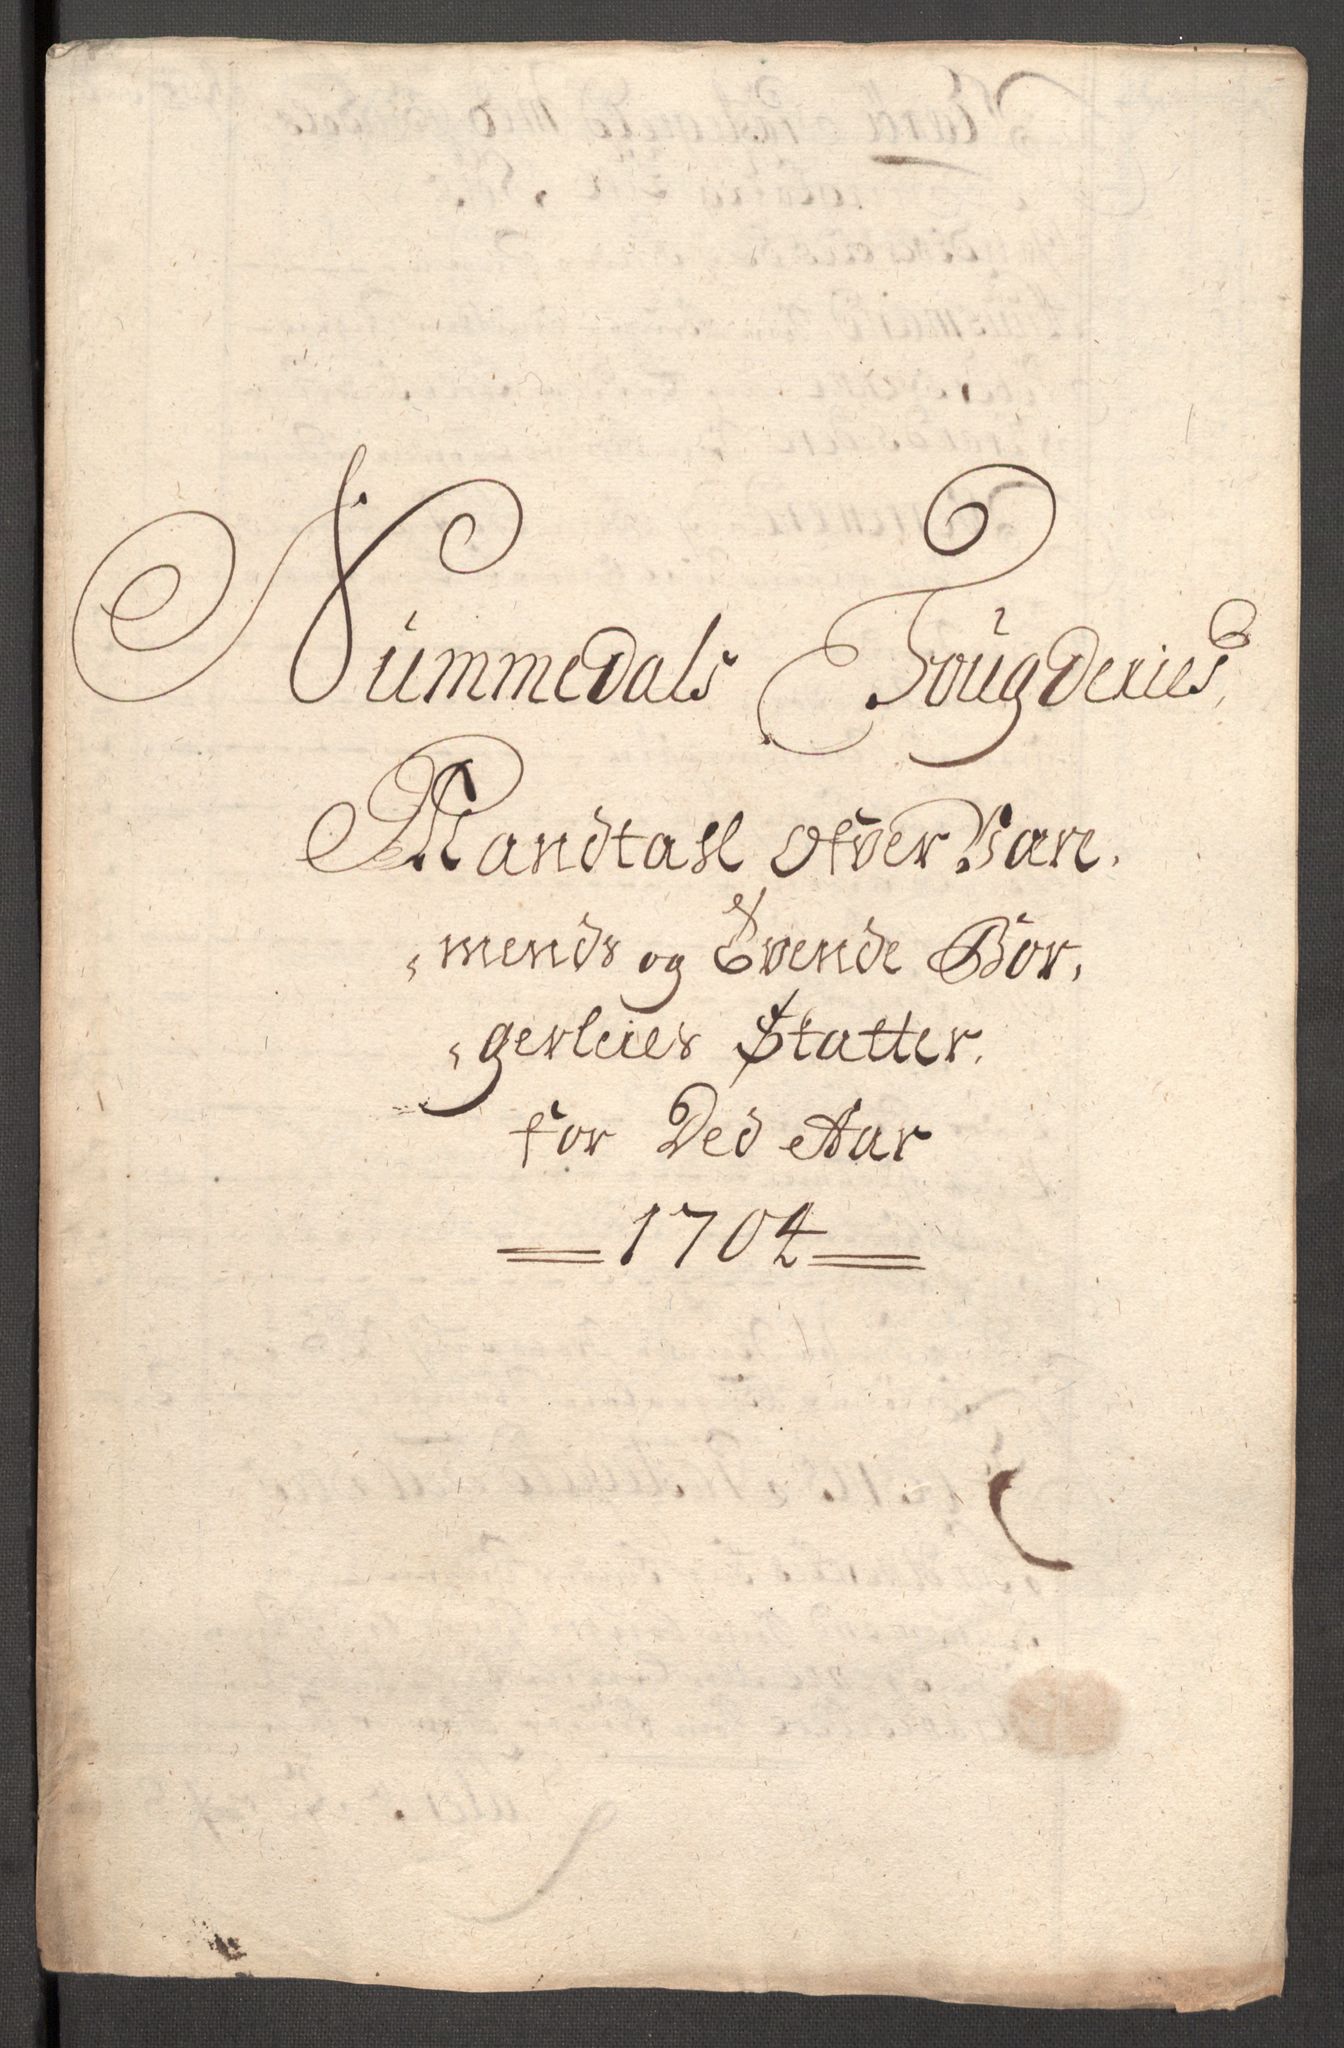 Nummedals Fougderies
Mandtall Ofver Vare
mends og Evende Bor
gerleies Skatter.
for Ded Aar
1704